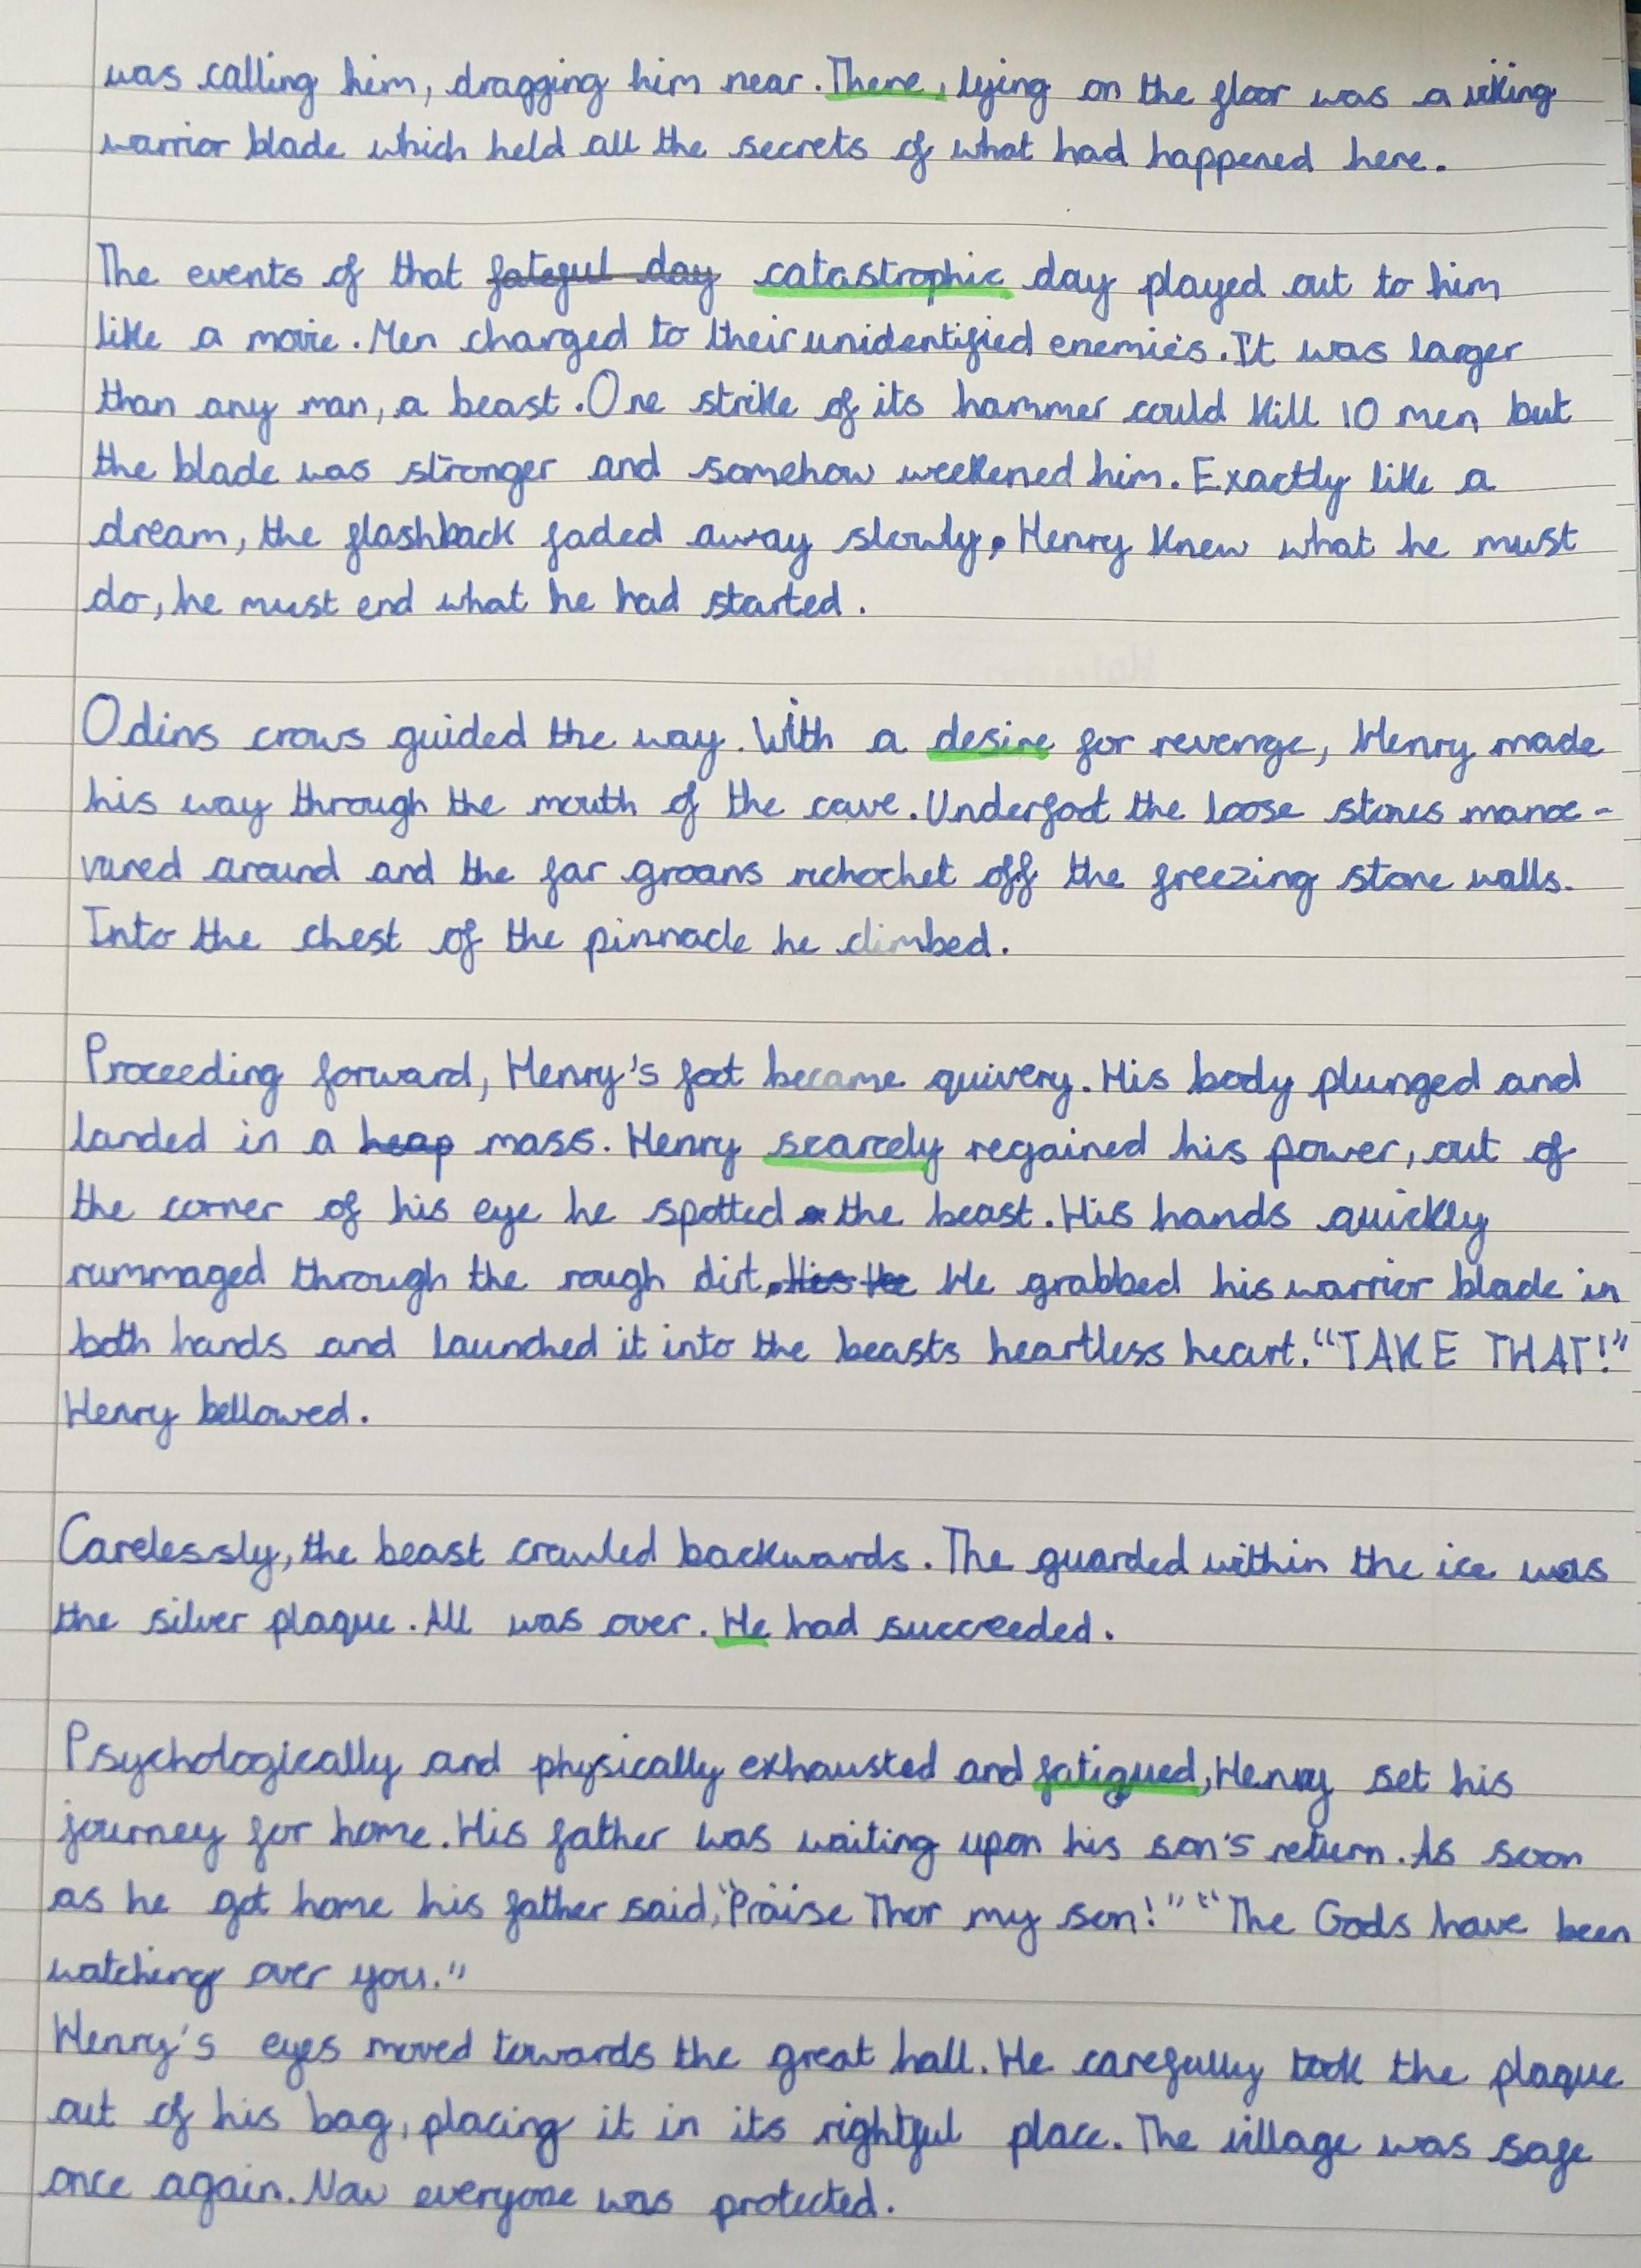 was calling him, dragging him near. There, lying on the floor was a viking
warrior blade which held all the secrets of what had happened here.
The events of that fateful day catastrophic day played out to him
like a movie. Men charged to their unidentified enemies. It was larger
than any man, a beast. One strike of its hammer could kill 10 men but
the blade was stronger and somehow weekened him. Exactly like a
dream, the flashback faded away slowly. Henry knew what he must
do, he must end what he had started.
Odins crows guided the way. With a desire for revenge, Henry made
his way through the mouth of the cave. Underfoot the loose stones manoe-
vured around and the far groans richochet off the freezing stone walls.
Into the chest of the pinnacle he climbed.
Proceeding forward, Henry's foot became quivery. His body plunged and
landed in a heap mass. Henry scarcely regained his power, out of
the corner of his eye he spotted the beast. His hands quickly
rummaged through the rough dirt. He grabbed his warrior blade in
both hands and launched it into the beasts heartless heart. "TAKE THAT!"
Henry bellowed.
Carelessly, the beast crawled backwards. The guarded within the ice was
the silver plaque. All was over. He had succeeded.
Psychologically and physically exhausted and fatigued, Henry set his
journey for home. His father was waiting upon his son's return. As soon
as he got home his father said, "Praise Thor my son!" "The Gods have been
watching over you."
Henry's eyes moved towards the great hall. He carefully took the plaque
out of his bag, placing it in its rightful place. The village was safe
once again. Now everyone was protected.